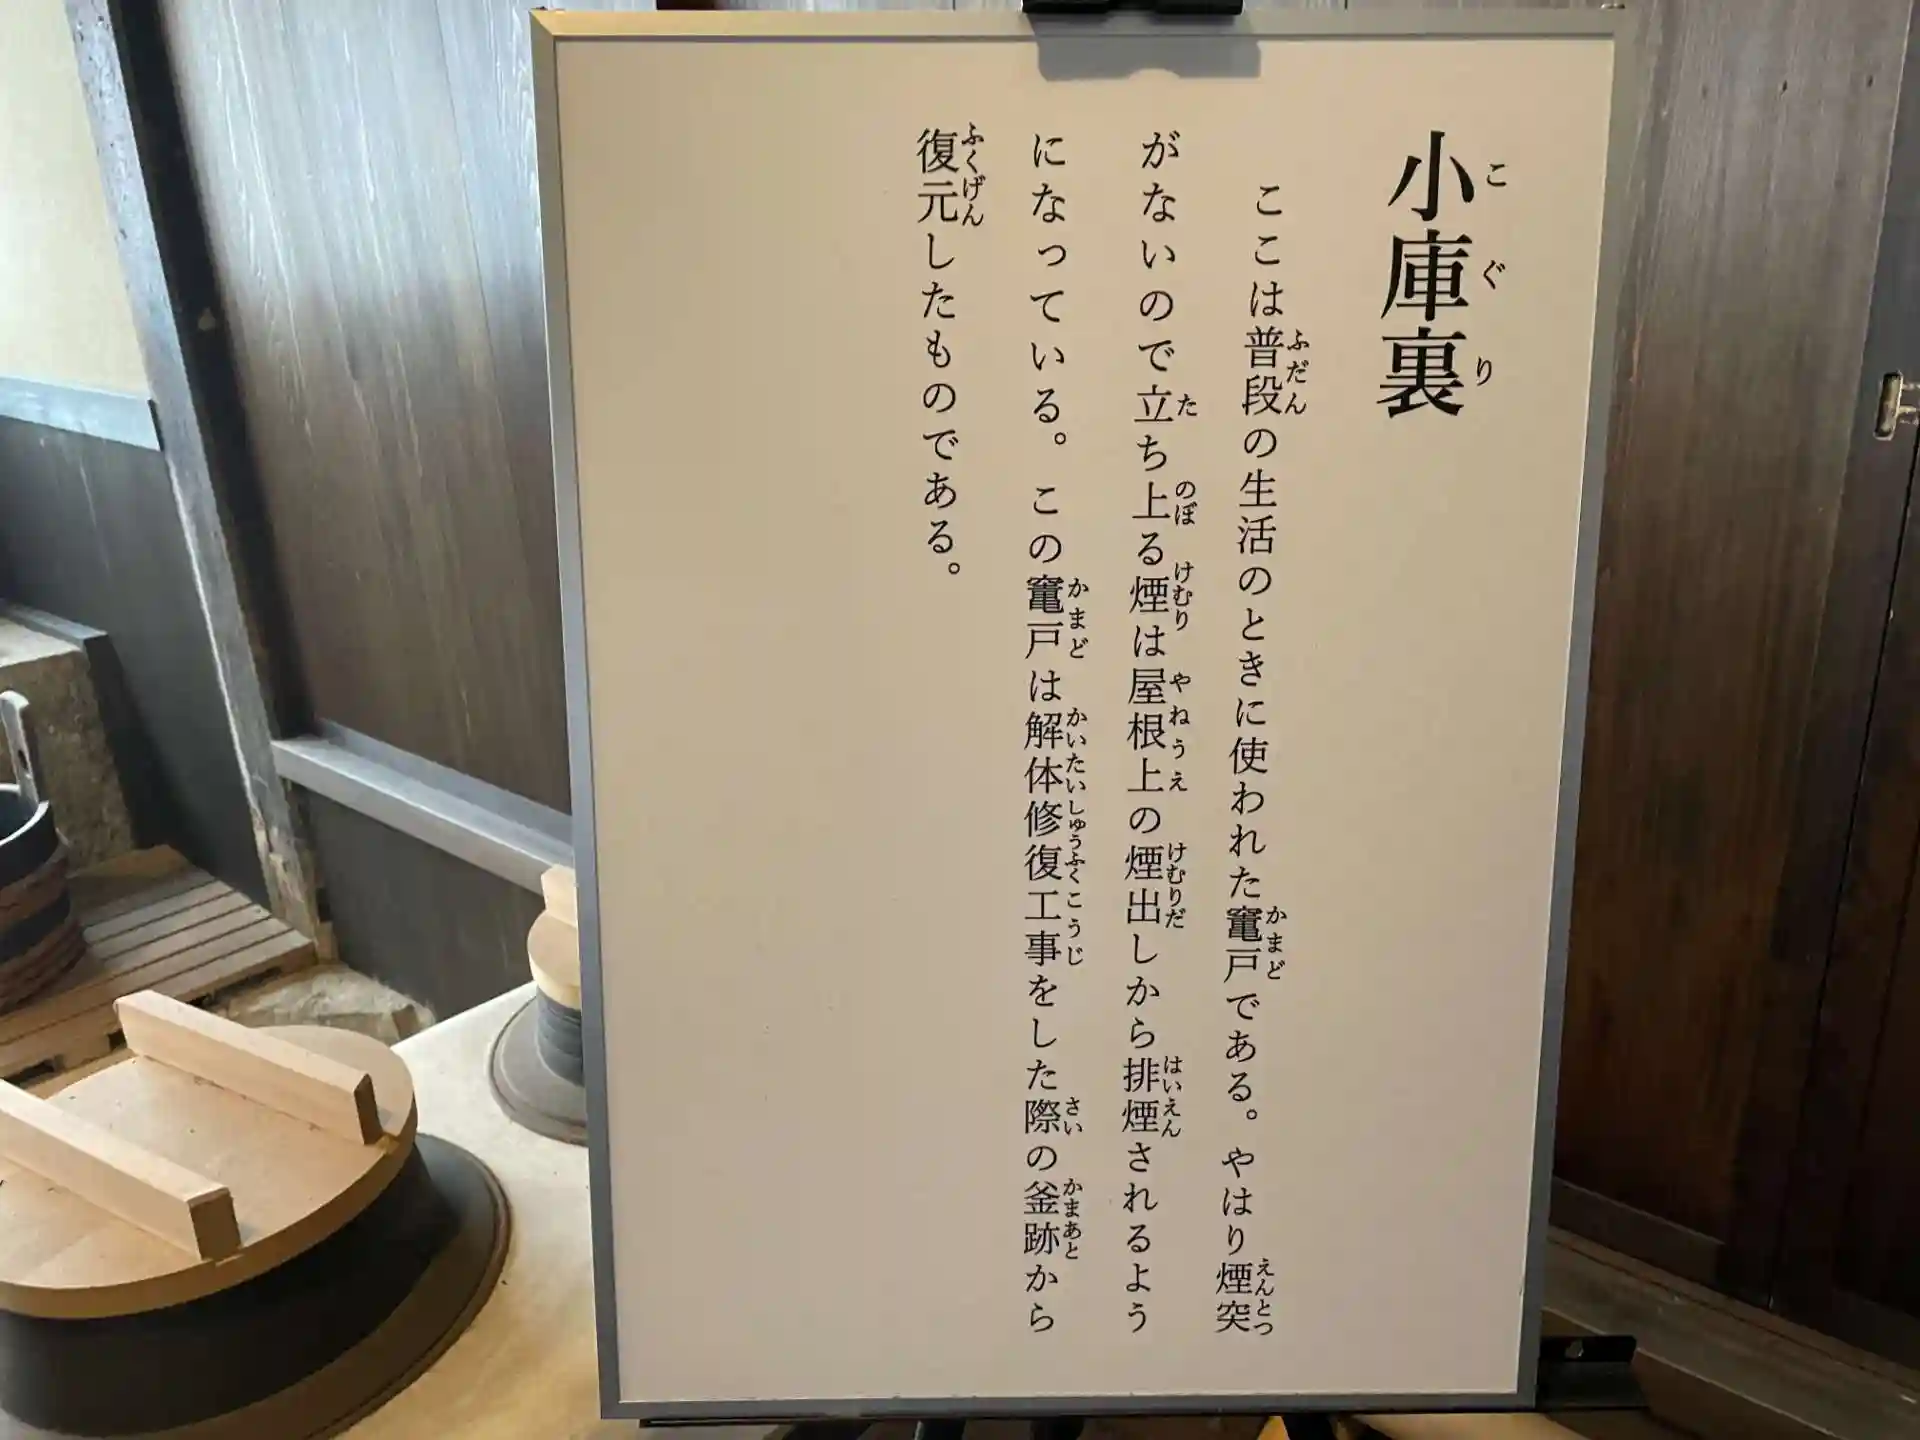 小庫裏
こぐり
ここは普段の生活のときに使われた竃戸である。やはり煙突
ふだん
かまど
えんとつ
がないので立ち上る煙は屋根上の煙出しから排煙されるよう
た
のぼ
けむり
やねうえ
けむりだ
はいえん
になっている。この竃戸は解体修復工事をした際の釜跡から
かまど
かいたいしゅうふくこうじ
さい
かまあと
復元したものである。
ふくげん